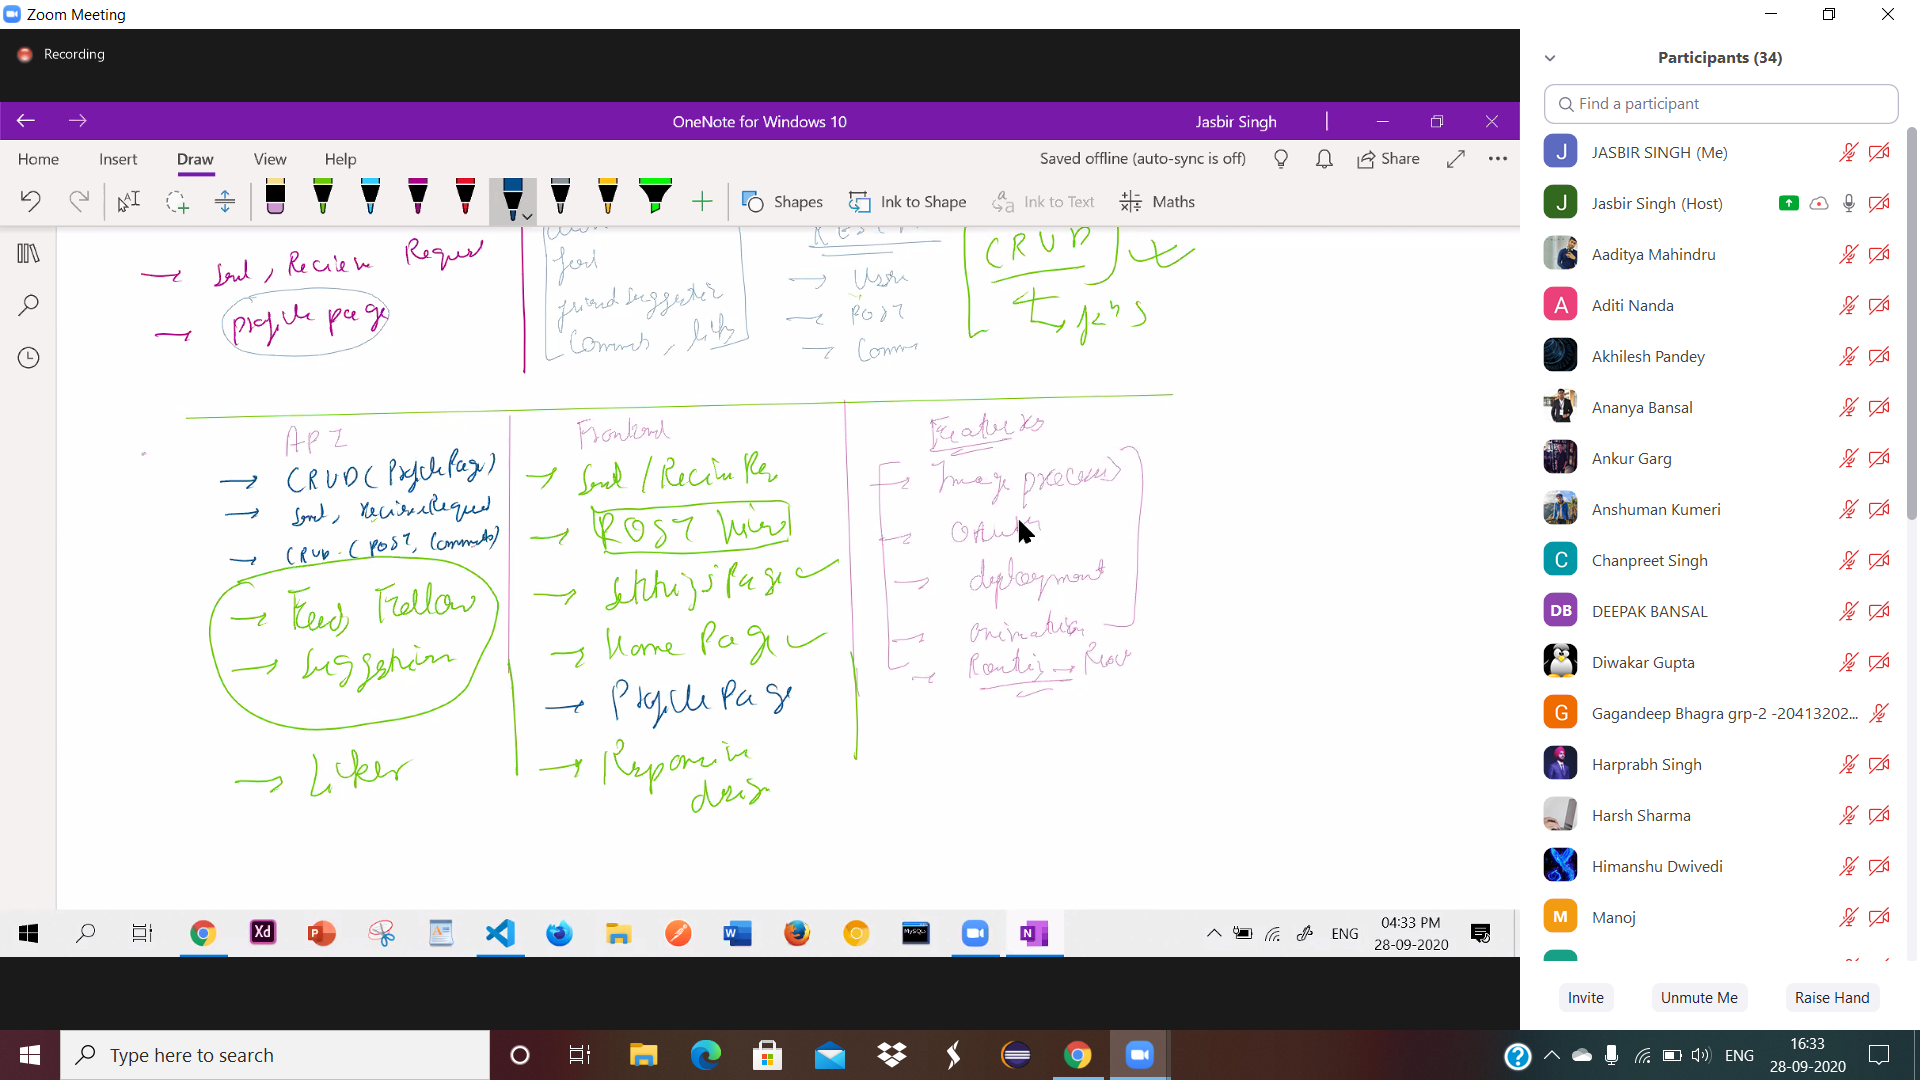 Zoom Meeting
Recording
OneNote for Windows 10
Jasbir Singh
Home Insert Draw View Help
Saved offline (auto-sync is off)
Share
Shapes
Ink to Shape
Ink to Text
Maths
→ Send, Recieve Reques
→ profile page
feed
friend suggestion
Comments, likes
→ User
→ POST
→ Comm
CRUD
API
→ CRUD (Profile Page)
→ Send, Recieve Request
→ CRUD (POST, Comments)
→ Feed, Follow
→ Suggestion
→ Likes
Frontend
→ Send / Recieve Req
→ POST View
→ Settings Page
→ Home Page
→ Profile Page
→ Responsive
design
Features
→ Image process
→ OAuth
→ deployment
→ animation
→ Routing →
Xd
MySQL
ENG
04:33 PM
28-09-2020
Participants (34)
Find a participant
J JASBIR SINGH (Me)
J Jasbir Singh (Host)
Aaditya Mahindru
A Aditi Nanda
Akhilesh Pandey
Ananya Bansal
Ankur Garg
Anshuman Kumeri
C Chanpreet Singh
DB DEEPAK BANSAL
Diwakar Gupta
G Gagandeep Bhagra grp-2 -20413202...
Harprabh Singh
Harsh Sharma
Himanshu Dwivedi
M Manoj
Invite
Unmute Me
Raise Hand
Type here to search
ENG
16:33
28-09-2020